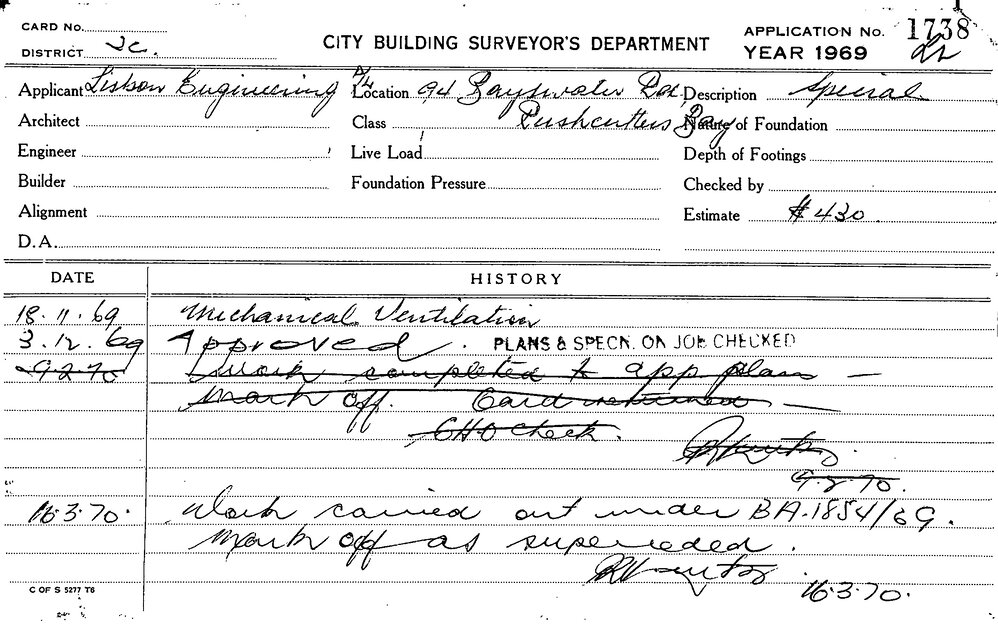 CARD No.
DISTRICT 3c.
CITY BUILDING SURVEYOR'S DEPARTMENT
APPLICATION No. 1738
YEAR 1969
Applicant Lisbon Engineering P/L Location 94 Bayswater Rd. Description Special
Architect Class Rushcutters Bay Nature of Foundation
Engineer Live Load Depth of Footings
Builder Foundation Pressure Checked by
Alignment Estimate $430.
D.A.
DATE HISTORY
18.11.69 Mechanical Ventilation
3.12.69 Approved. PLANS & SPECN. ON JOB CHECKED
9.2.70 Work completed to app plans —
Mark off. Card returned —
CHO check.
9.2.70.
16.3.70. Work carried out under BA.1854/69.
Mark off as superceded.
16.3.70.
C OF S 5277 T6